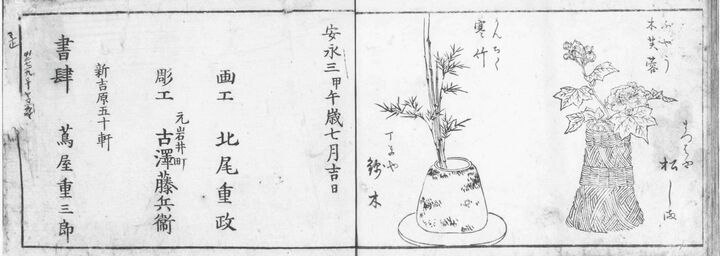 ふやう
木芙蓉
まつばや
松しま
かんちく
寒竹
丁子や
安永三甲午歳七月吉日
画工 北尾重政
元岩井町
彫工 古澤藤兵衛
新吉原五十軒
書肆 蔦屋重三郎